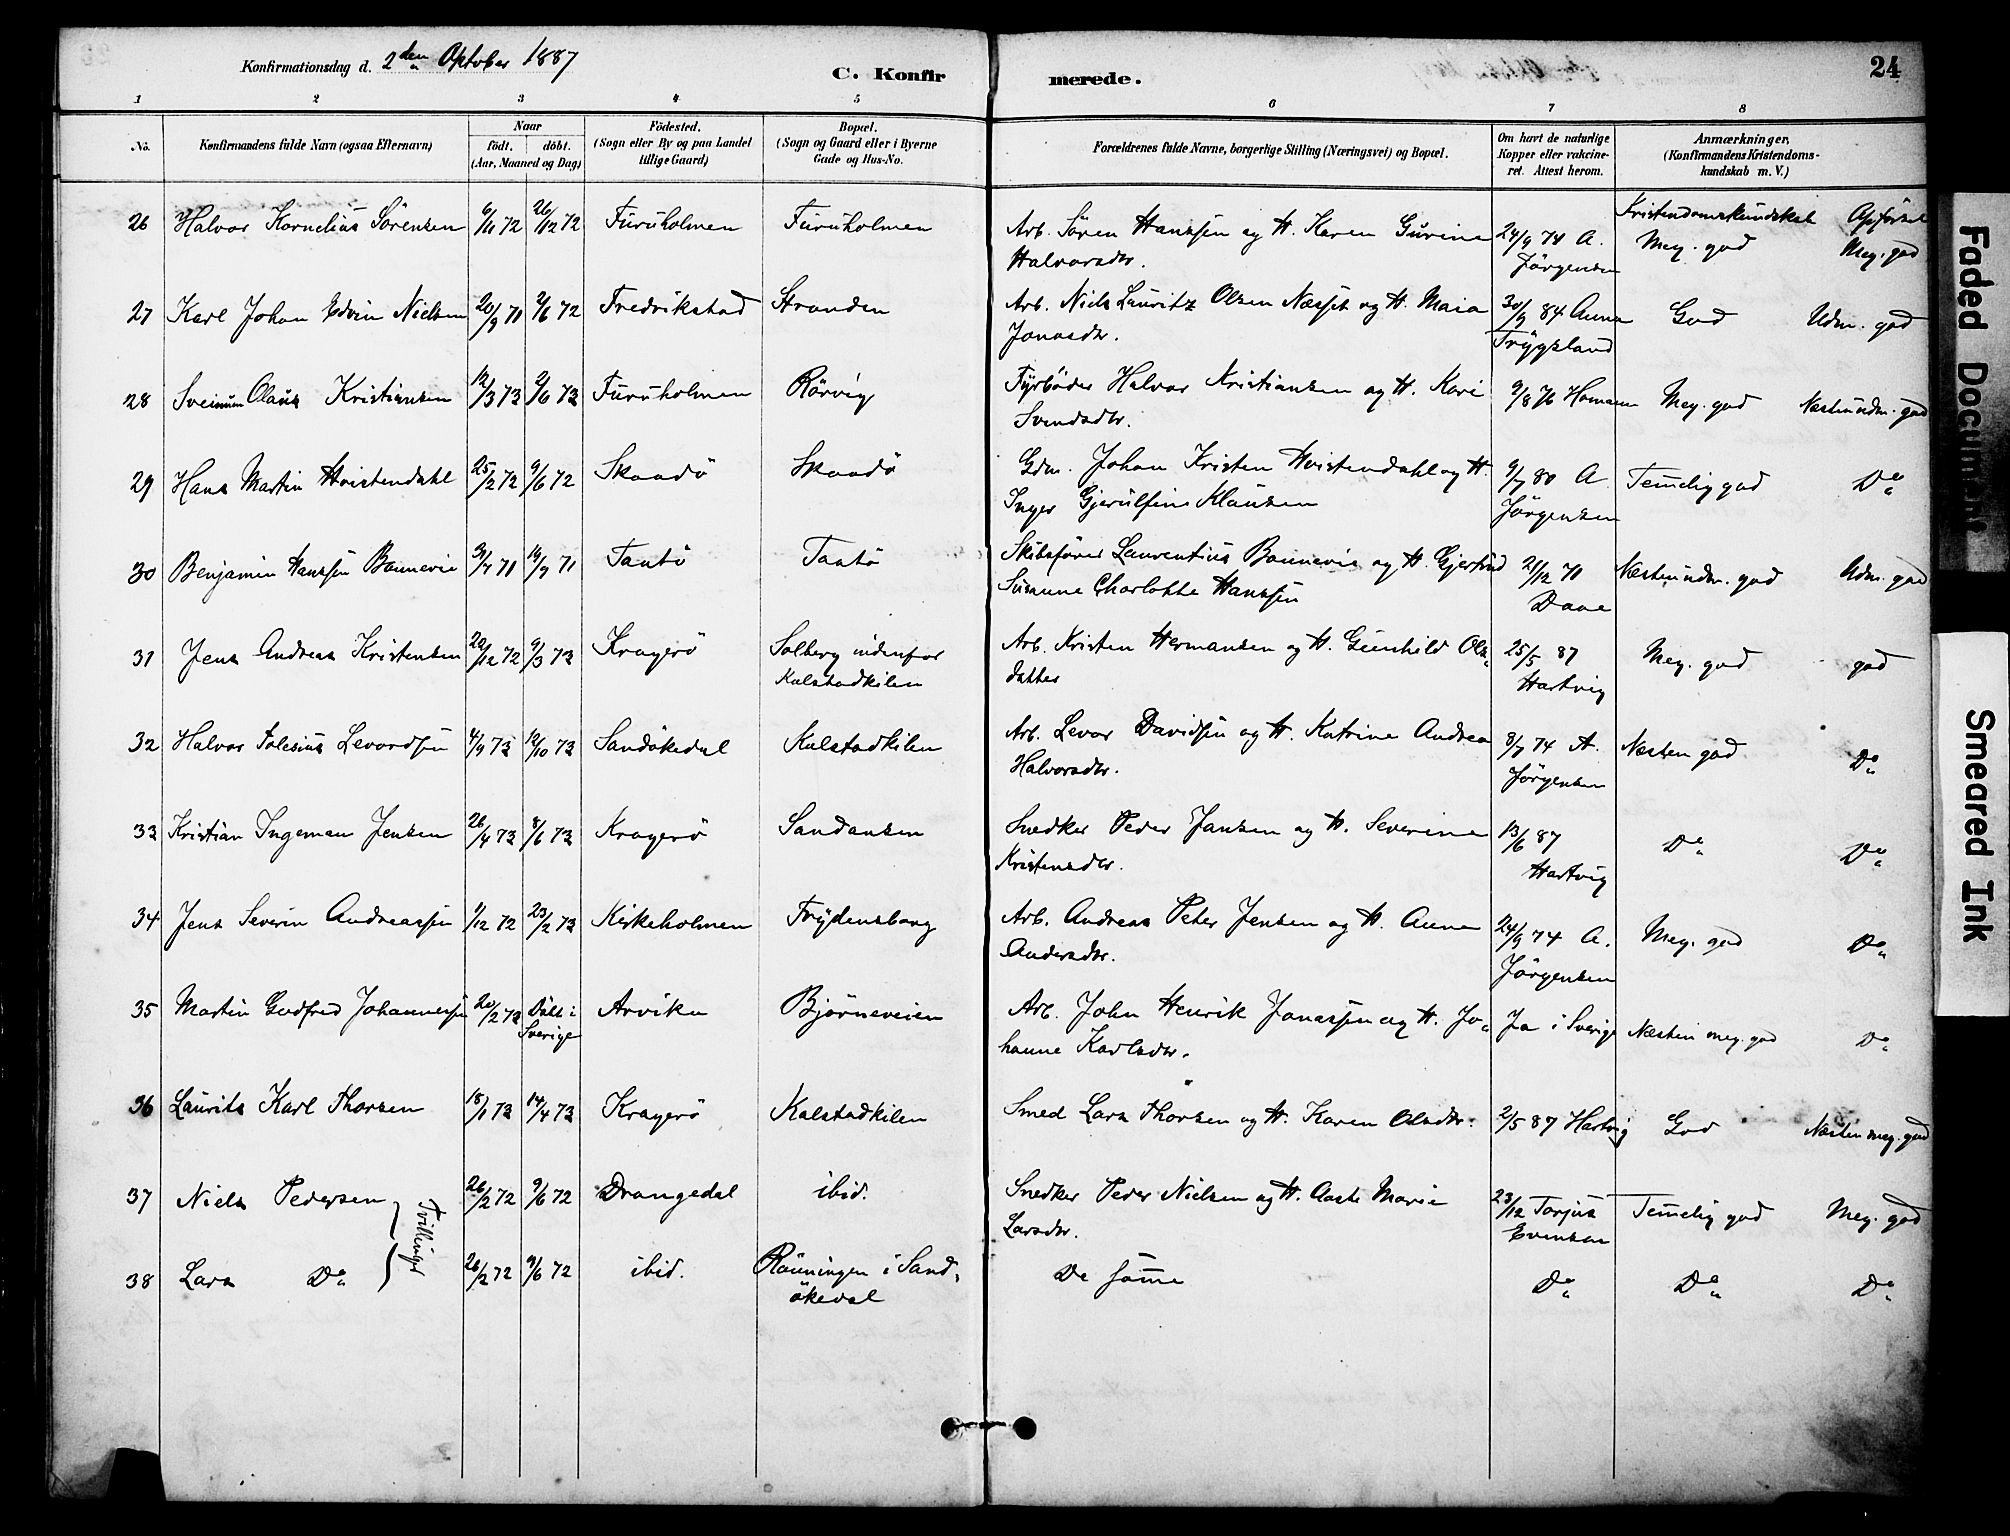 Konfirmationsdag d. 2den Oktober 1887
C. Konfirmerede. 24
1 2 3 4 5 6 7 8
No. Konfirmandens fulde Navn (ogsaa Efternavn) Naar födt. döbt. (Aar, Maaned og Dag) Födested. (Sogn eller By og paa Landet tillige Gaard) Bopæl. (Sogn og Gaard eller i Byerne Gade og Hus-No. Forældrenes fulde Navne, borgerlige Stilling (Næringsvei) og Bopæl. Om havt de naturlige Kopper eller vakcineret. Attest herom. Anmærkninger, (Konfirmandens Kristendomskundskab m. V.)
Kristendomskundskab Opförsel
26 Halvor Kornelius Sörensen 6/11 72 26/12 72 Furuholmen Furuholmen Arb. Sören Hanssen og H. Karen Gurine 24/9 74 A. Meg. god Meg. god
Halvorsdtr. Jörgensen
27 Karl Johan Edvin Nielsen 20/9 71 2/6 72 Fredrikstad Stranden Arb. Niels Lauritz Olsen Næsset og H. Maia 30/9 84 Anna God Udm. god
Jonasdtr. Trygsland
28 Sveinum Olaus Kristiansen 12/3 73 2/6 73 Furuholmen Rörvig Fyrböder Halvor Kristiansen og H. Kari 9/8 76 Homann Meg. god Næsten udm. god
Svendsdtr.
29 Hans Martin Hvistendahl 25/2 72 9/6 72 Skaadö Skaadö Gdm. Johan Kristen Hvistendahl og H. 9/7 80 A. Temelig god Do
Inger Gjerulfine Klausen Jörgensen
30 Benjamin Hanssen Bonnevie 31/7 71 19/9 71 Taatö Taatö Skibsförer Laurentius Bonnevie og H. Gjertrud 21/12 71 Næsten udm. god Udm. god
Susanne Charlotte Hanssen Daae
31 Jens Andreas Kristensen 22/12 72 9/3 73 Kragerö Solberg indenfor Arb. Kristen Hermansen og H. Gunhild Ols- 25/5 87 Meg. god god
Kalstadkilen datter Hartvig
32 Halvor Tolesius Levordsen 4/9 73 12/10 73 Sandökedal Kalstadkilen Arb. Levor Davidsen og H. Katrine Andrea 8/7 74 A. Næsten god Do
Halvorsdtr. Jörgensen
33 Kristian Ingeman Jensen 26/4 73 8/6 73 Kragerö Sandaasen Snedker Peder Jansen og H. Severine 13/6 87 Do Do
Kristensdtr. Hartvig
34 Jens Severin Andreassen 1/12 72 23/2 73 Kirkeholmen Frydensborg Arb. Andreas Peter Jensen og H. Anna 24/9 74 A. Meg. god Do
Andersdtr. Jörgensen
35 Martin Godfred Johannessen 20/2 73 Döbt i Arvika Björneveien Arb. John Henrik Jonassen og H. Jo- Ja i Sverige Næsten meg. god Do
Sverige hanne Karlsdtr.
36 Laurits Karl Thorsen 18/1 73 14/4 73 Kragerö Kalstadkilen Smed Lars Thorsen og H. Karen Olsdtr. 2/5 87 Hartvig God Næsten meg. god
37 Niels Pedersen 26/2 72 9/6 72 Drangedal ibid. Snedker Peder Nielsen og H. Aaste Marie 23/12 Torjus Temelig god Meg. god
Tvillinger Larsdtr. Evensen
38 Lars Do 26/2 72 9/6 72 ibid. Rönningen i Sand- De samme Do Do Do
ökedal
Faded Document
Smeared Ink